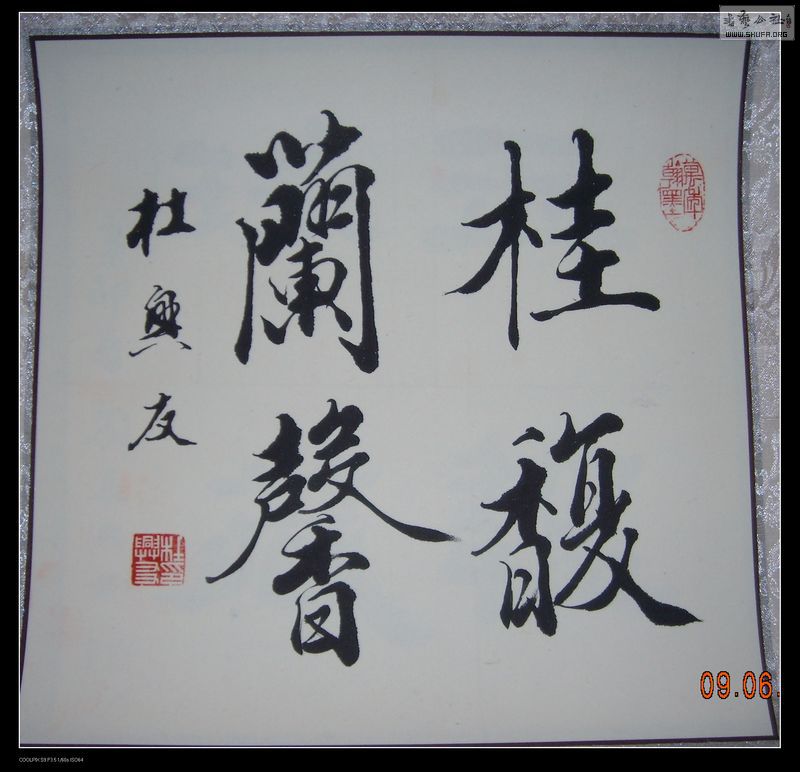 桂馥
蘭馨
杜興友
杜興友印
書藝公社
WWW.SHUFA.ORG
09.06.
COOLPIX S9 F3.5 1/60s ISO64